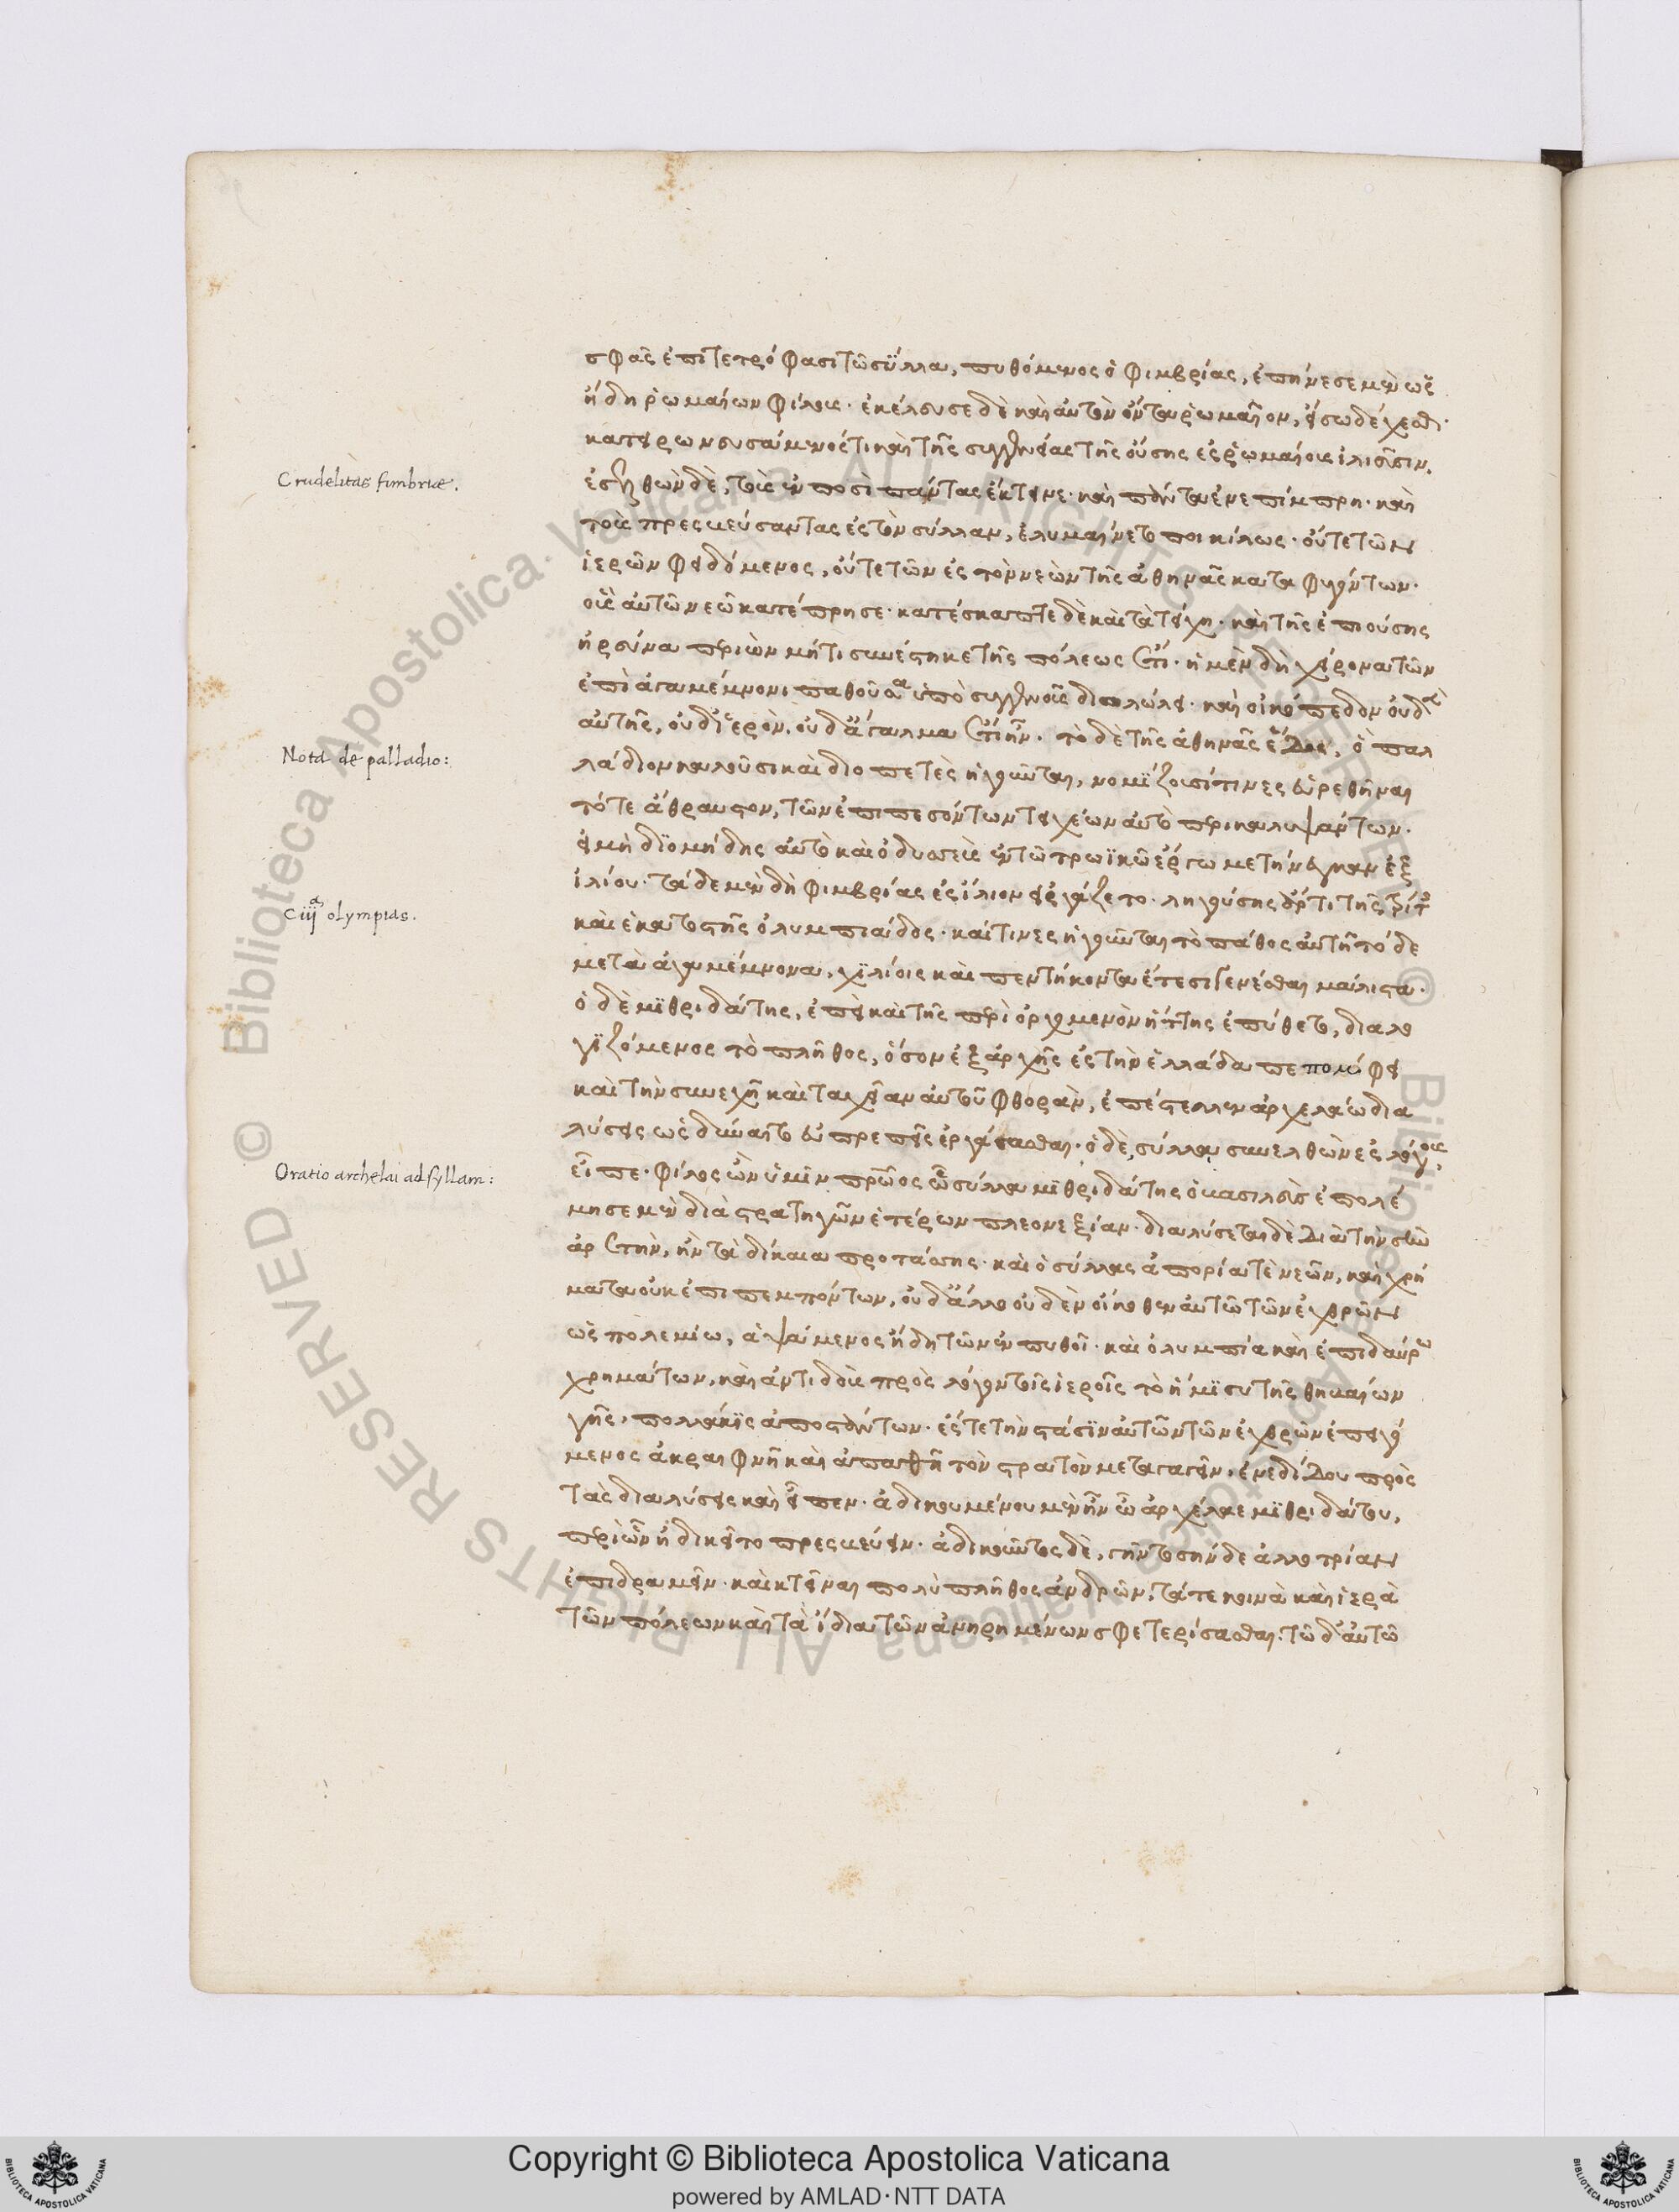 σφᾶς ἐπιτετρόφασι τῶ σύλλα, πυθόμενος ὁ φιμβρίας, ἐπήνεσε μὲν ὡς
ἤδη ῥωμαίων φίλους· ἐκέλευσε δὲ καὶ αὐτὸν ὄντα ῥωμαῖον, εἴσω δέχεσθαι·
κατειρωνευσάμενός τι καὶ τῆς συγγενείας τῆς οὔσης ἐς ῥωμαίους ἰλιεῦσιν.
Crudelitas fimbriæ.
ἐσελθὼν δὲ, τοὺς ἐν ποσὶ πάντας ἔκτεινε· καὶ πάντα ἐνεπίμπρη· καὶ
τοὺς πρεσβεύσαντας ἐς τὸν σύλλαν, ἐλυμαίνετο ποικίλως· οὔτε τῶν
ἱερῶν φειδόμενος, οὔτε τῶν ἐς τὸν νεὼν τῆς ἀθηνᾶς καταφυγόντων·
οὓς αὐτῶ νεῶ κατέπρησε· κατέσκαπτε δὲ καὶ τὰ τείχη· καὶ τῆς ἐπιούσης
ἠρεύνα περιιὼν μή τι συνέστηκε τῆς πόλεως ἔτι· ἡ μὲν δὴ χείρονα τῶν
ἐπὶ ἀγαμέμνονι παθοῦσα ὑπὸ συγγενοῦς διολώλει· καὶ οἰκόπεδον οὐδὲν
αὐτῆς, οὐδ' ἱερὸν, οὐδ' ἄγαλμα ἔτι ἦν. τὸ δὲ τῆς ἀθηνᾶς ἕδος, ὃ παλ
Nota de palladio:
λάδιον καλοῦσι καὶ διοπετὲς ἡγοῦνται, νομίζουσί τινες εὑρεθῆναι
τότε ἄθραυστον, τῶν ἐπιπεσόντων τειχέων αὐτὸ περικαλυψάντων·
εἰ μὴ διομήδης αὐτὸ καὶ ὀδυσσεὺς ἐν τῶ τρωϊκῶ ἔργω μετήνεγκαν ἐξ
ἰλίου· τάδε μὲν δὴ φιμβρίας ἐς ἴλιον εἰργάζετο· ληγούσης ἄρτι τῆς τρίτης
Ciijª olympias.
καὶ ἑκατοστῆς ὀλυμπιάδος· καί τινες ἡγοῦνται τὸ πάθος αὐτῆ τόδε
μετὰ ἀγαμέμνονα, χιλίοις καὶ πεντήκοντα ἔτεσι γενέσθαι μάλιστα·
ὁ δὲ μιθριδάτης, ἐπεὶ καὶ τῆς περὶ ὀρχομενὸν ἥττης ἐπύθετο, διαλο
γιζόμενος τὸ πλῆθος, ὅσον ἐξ ἀρχῆς ἐς τὴν ἑλλάδα πεπόμφει
καὶ τὴν συνεχῆ καὶ ταχεῖαν αὐτοῦ φθορὰν, ἐπέστελλεν ἀρχελάω δια
λύσεις ὡς δύναιτο εὐπρεπεῖς ἐργάσασθαι· ὁ δὲ, σύλλα συνελθὼν ἐς λόγους,
Oratio archelai ad syllam:
εἶπε· φίλος ὢν ὑμῖν πατρῷος ὦ σύλλα μιθριδάτης ὁ βασιλεὺς ἐπολέ
μησε μὲν διὰ στρατηγῶν ἑτέρων πλεονεξίαν· διαλύσεται δὲ διὰ τὴν σὴν
ἀρετὴν, ἢν τὰ δίκαια προτάσσης· καὶ ὁ σύλλας ἀπορία τὲ νεῶν, καὶ χρή
ματα οὐκ ἐπιπεμπόντων, οὐδ' ἄλλο οὐδὲν οἴκοθεν αὐτῶ τῶν ἐχθρῶν
ὡς πολεμίω, ἁψάμενος ἤδη τῶν ἐν πυθοῖ· καὶ ὀλυμπία καὶ ἐπιδαύρω
χρημάτων, καὶ ἀντιδοὺς πρὸς λόγον τοῖς ἱεροῖς τὸ ἥμισυ τῆς θηβαίων
γῆς, πολλάκις ἀποστάντων· ἔς τε τὴν στάσιν αὐτῶν τῶν ἐχθρῶν ἐπειγό
μενος ἀκραιφνῆ καὶ ἀπαθῆ τὸν στρατὸν μεταγαγεῖν, ἐνεδίδου πρὸς
τὰς διαλύσεις καὶ εἶπεν· ἀδικουμένου μὲν ἦν ὦ ἀρχέλαε μιθριδάτου,
περὶ ὧν ἠδικεῖτο πρεσβεύειν· ἀδικοῦντος δὲ, γῆν τοσήνδε ἀλλοτρίαν
ἐπιδραμεῖν· καὶ κτεῖναι πολὺ πλῆθος ἀνδρῶν, τά τε κοινὰ καὶ ἱερὰ
τῶν πόλεων καὶ τὰ ἴδια τῶν ἀνῃρημένων σφετερίσασθαι. τῶ δ' αὐτῶ
Copyright © Biblioteca Apostolica Vaticana
powered by AMLAD·NTT DATA